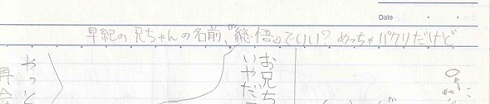 Date
早紀の兄ちゃんの名前、"総悟"でいい？めっちゃパクリだけど。
お兄ち
いやだ
やっと
再会